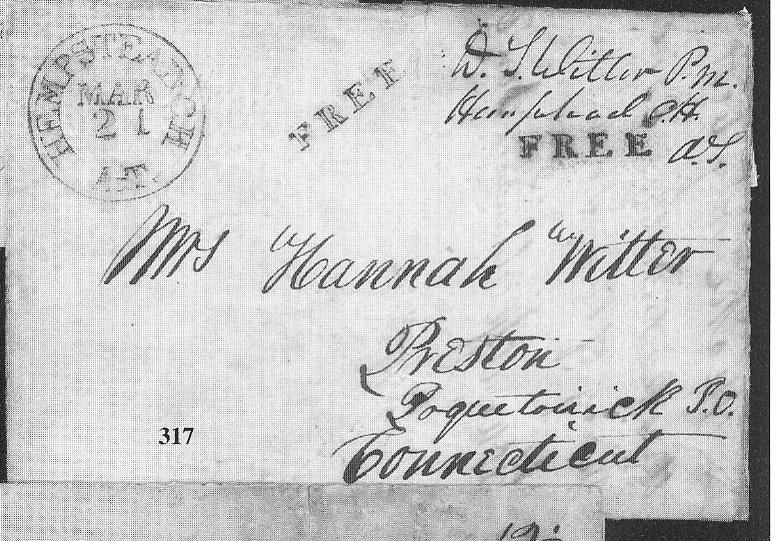 HEMPSTEAD CH
MAR
21
A.T.
FREE
D. T. Witter P.M.
Hempstead C.H.
FREE A.T.
Mrs Hannah Witter
Preston
Poquetonick P.O.
Connecticut
317